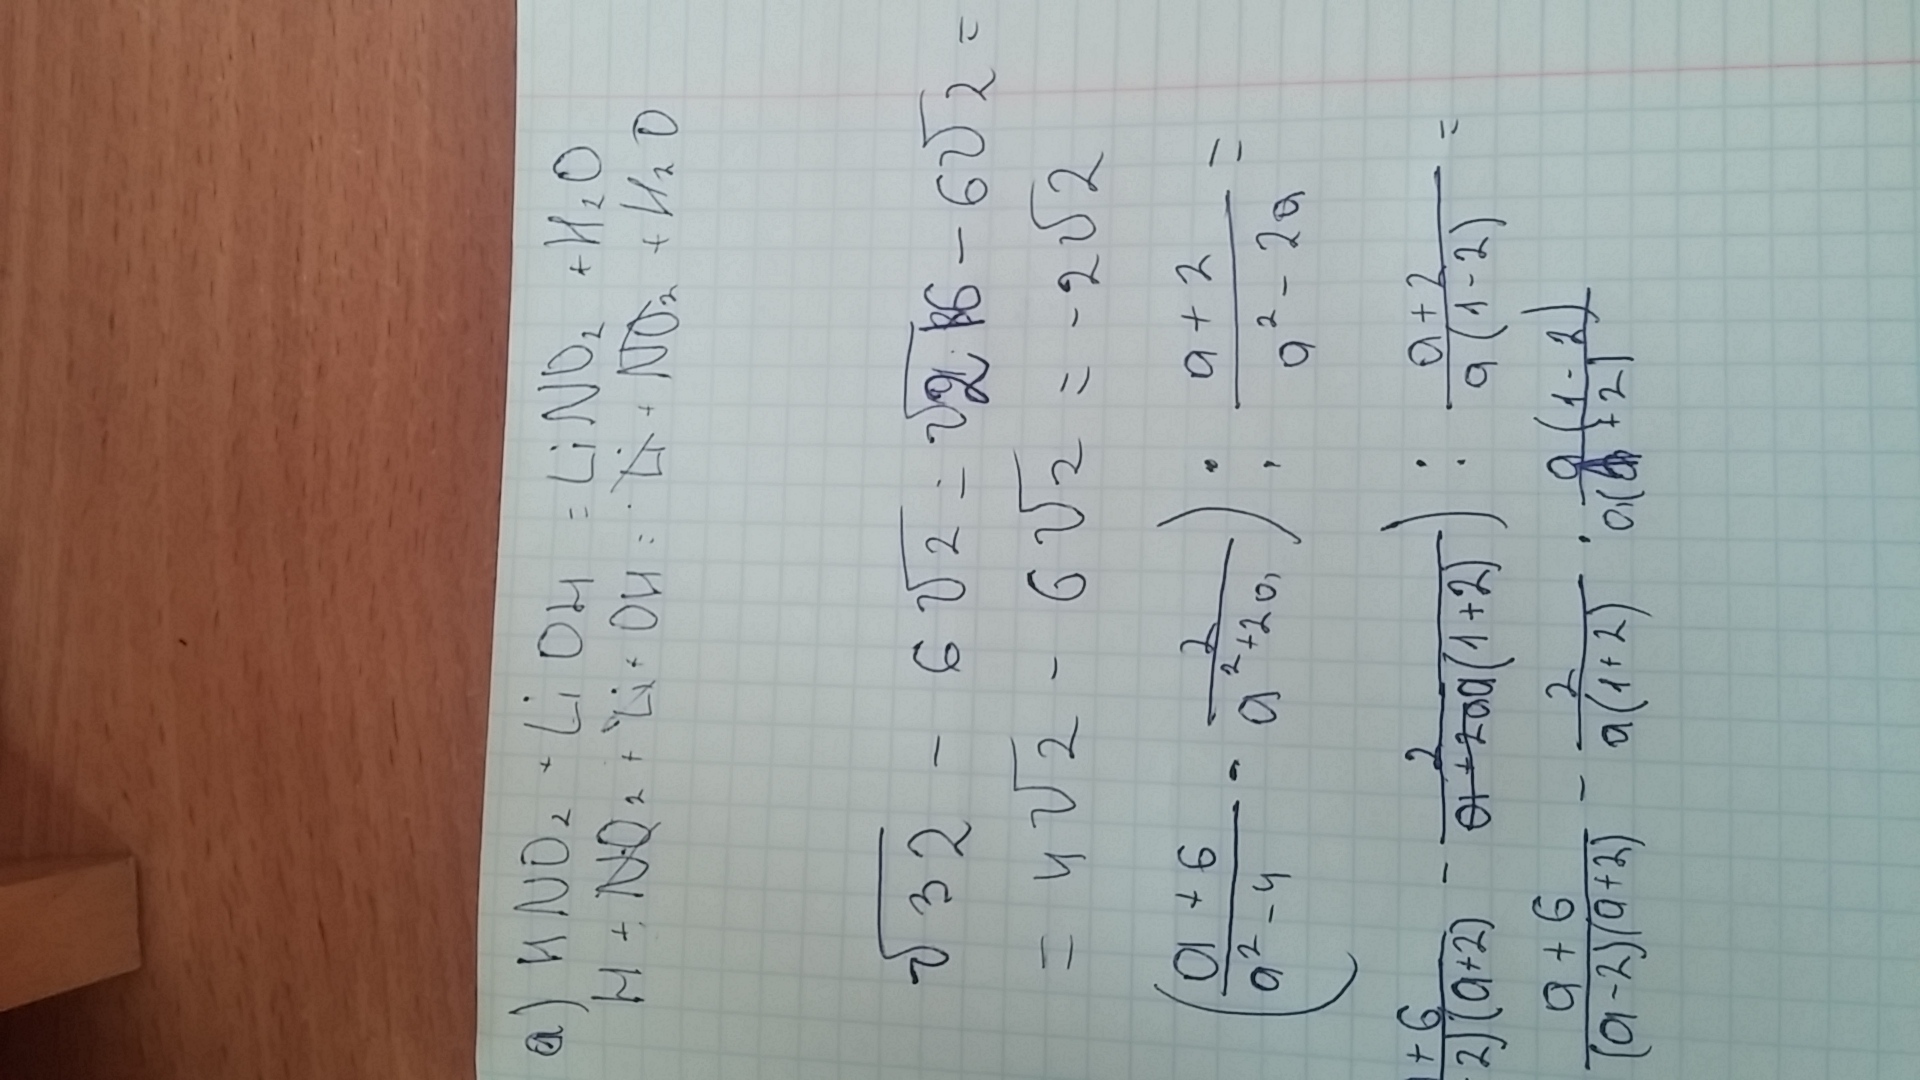 а) HNO₂ + LiOH = LiNO₂ + H₂O
H + NO₂ + Li + OH = Li + NO₂ + H₂O
√32 - 6√2 = √2·16 - 6√2 =
= 4√2 - 6√2 = -2√2
(a+6/a²-4 - 2/a²+2a) : a+2/a²-2a =
+6/2)(a+2) - 2/a(1+2)) : a+2/a(1-2) =
a+6/(a-2)(a+2) - 2/a(1+2) · a(1-2)/+2)